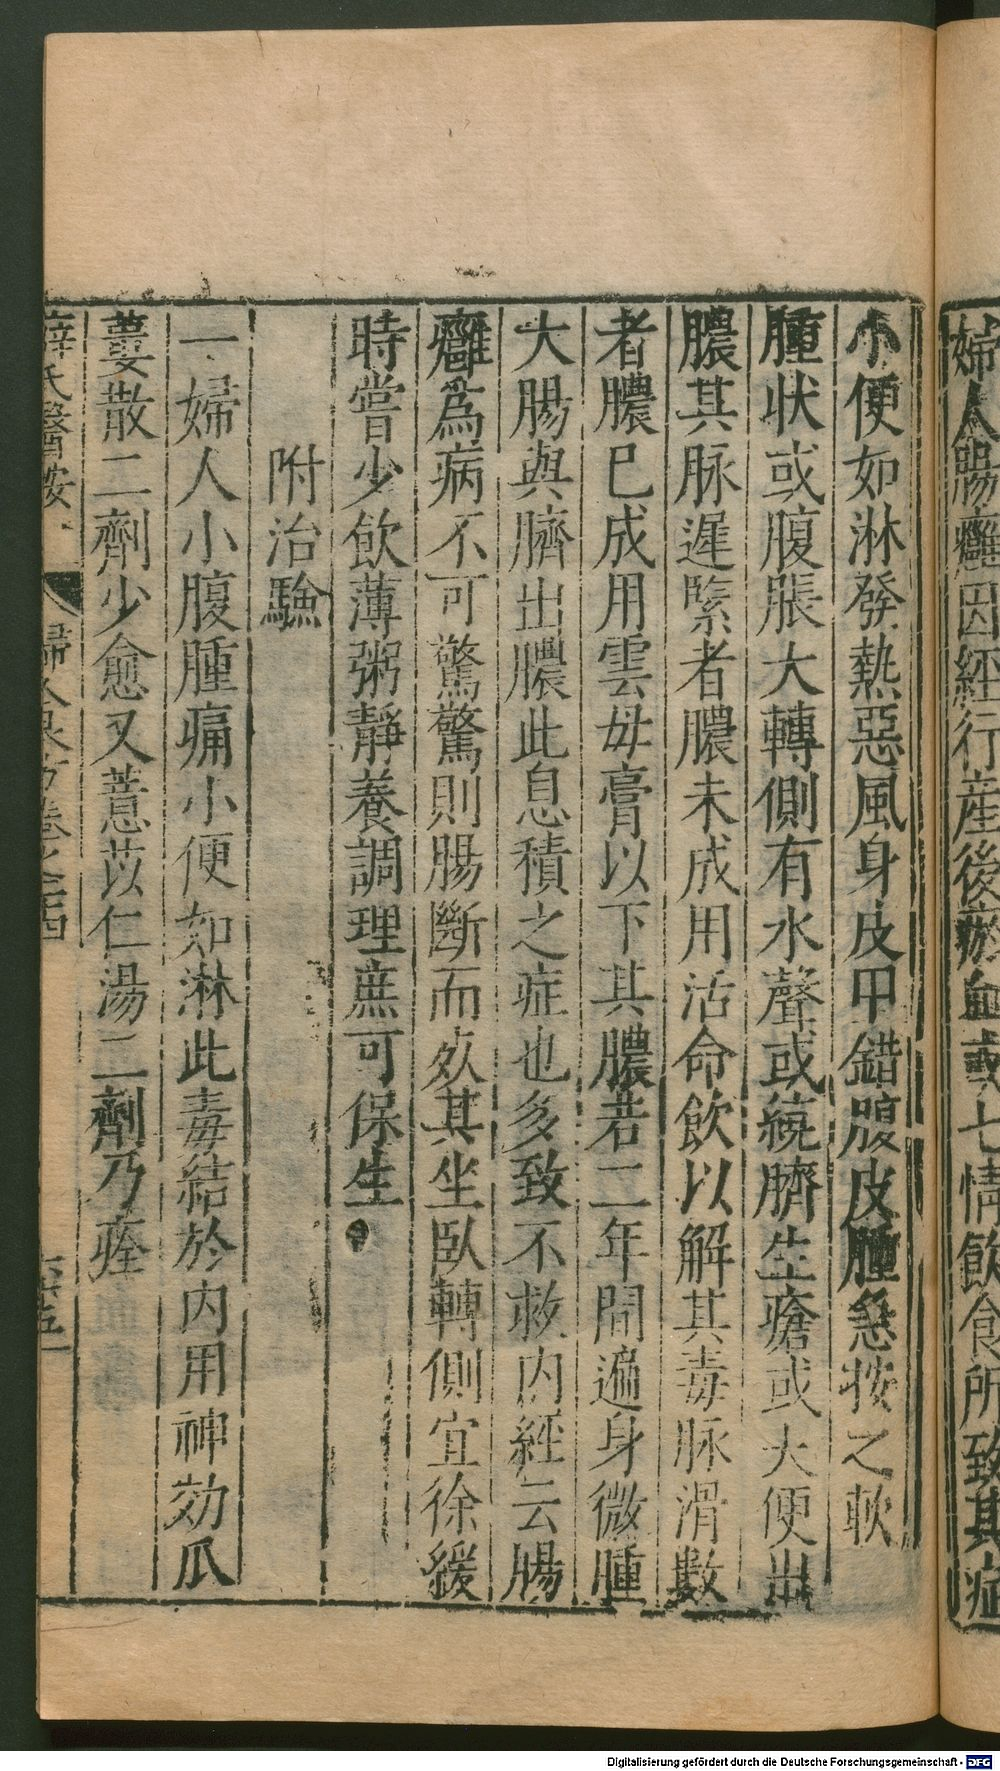 婦人腸癰因經行産後瘀血或七情飲食所致其症
小便如淋發熱惡風身皮甲錯腹皮腫急按之軟
腫状或腹脹大轉側有水聲或繞臍生瘡或大便出
膿其脉遲緊者膿未成用活命飲以解其毒脉滑數
者膿已成用雲母膏以下其膿若二年間遍身微腫
大腸與臍出膿此息積之症也多致不救内經云腸
癰為病不可驚驚則腸斷而死其坐臥轉側宜徐緩
時嘗少飲薄粥靜養調理庶可保生
附治驗
一婦人小腹腫痛小便如淋此毒結於内用神効瓜
蔞散二劑少愈又薏苡仁湯二劑乃痊
薛氏醫按 婦人良方卷之二四 六十五
Digitalisierung gefördert durch die Deutsche Forschungsgemeinschaft - DFG